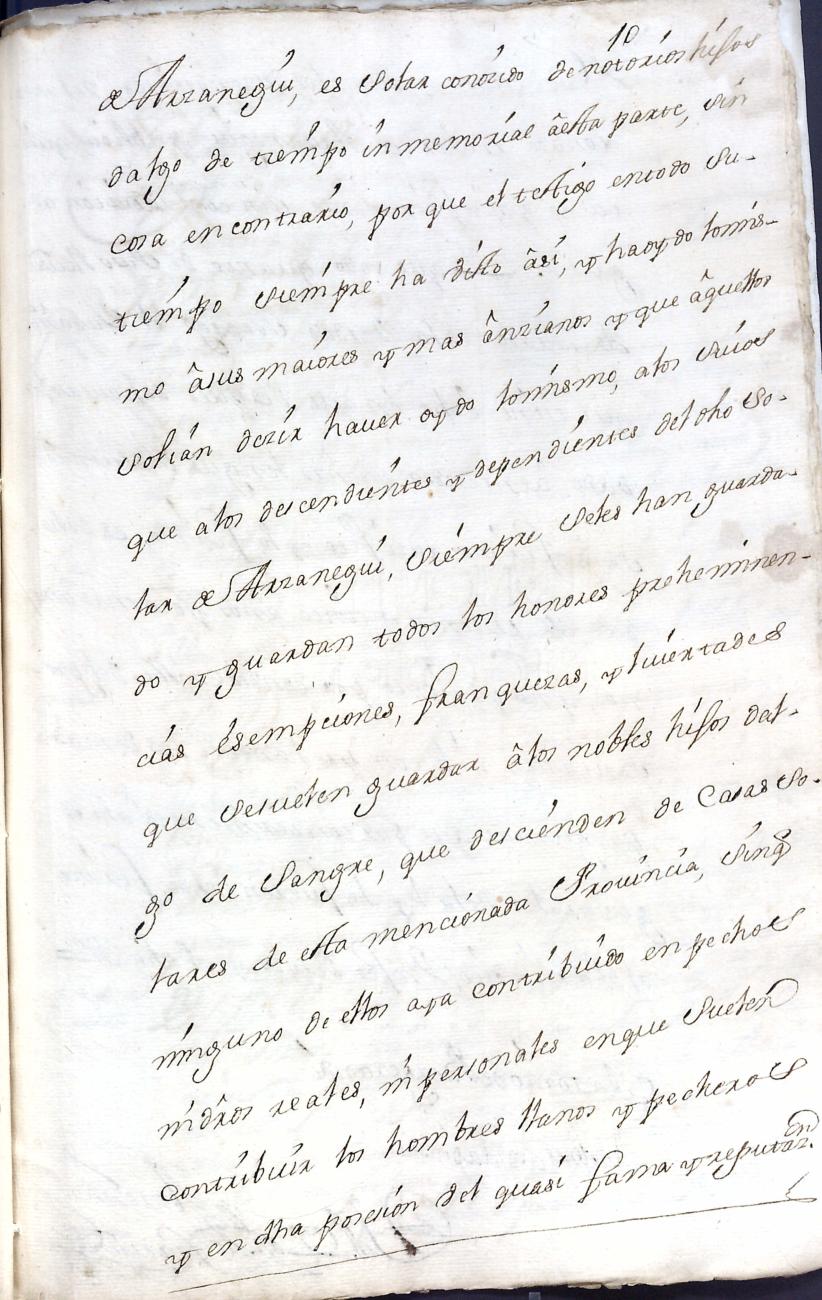 10
de Arranegui, es Solar conozido de notorios hijos
dalgo de tiempo inmemorial âesta parte, sin
cosa en contrario, por que el testigo entodo su-
tiempo siempre ha dicho âsi, y haoydo lomis-
mo âsus maiores y mas ânzianos y que âquellos
solian dezir haver oydo lomismo, alos suios
que alos descendientes y dependientes del dho So-
lar de Arranegui, siempre seles han guarda-
do y guardan todos los honores preheminen-
cias esempciones, franquezas, y livertades
que sesuelen guardar âlos nobles hijos dal-
go de Sangre, que descienden de Casas So-
lares de esta mencionada Provincia, sinq̃
ninguno de ellos aya contribuido en pechos
ni dr̃os reales, ni personales enque suelen
contribuir los hombres llanos y pecheros
y en dha posesion vel quasi fama y reputaz.on